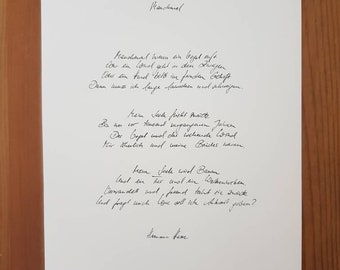 Manchmal
Manchmal, wenn ein Vogel ruft
Oder ein Wind geht in den Zweigen
Oder ein Hund bellt im fernsten Gehöft
Dann muss ich lange lauschen und schweigen.
Meine Seele flieht zurück
Bis wo vor tausend vergessenen Jahren
Der Vogel und der wehende Wind
Mir ähnlich und meine Brüder waren.
Meine Seele wird Baum
Und ein Tier und ein Wolkenweben.
Verwandelt und fremd kehrt sie zurück
Und fragt mich. Wie soll ich Antwort geben?
Hermann Hesse